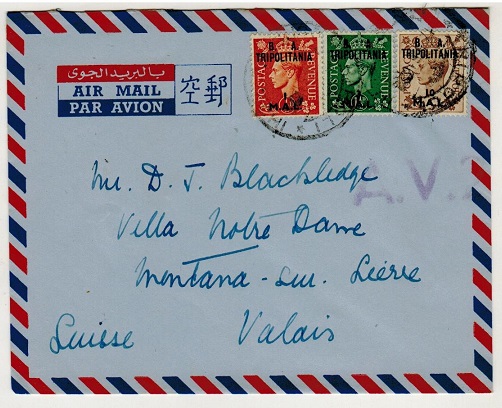 بالبريد الجوى
AIR MAIL
PAR AVION
空郵
B. A.
TRIPOLITANIA
POSTAGE REVENUE
M.A.L.
B. A.
TRIPOLITANIA
POSTAGE REVENUE
M.A.L.
B. A.
TRIPOLITANIA
10
M.A.L.
A.V.2
Mr. D. J. Blackledge
Villa Notre Dame
Montana-sur-Sierre
Suisse Valais